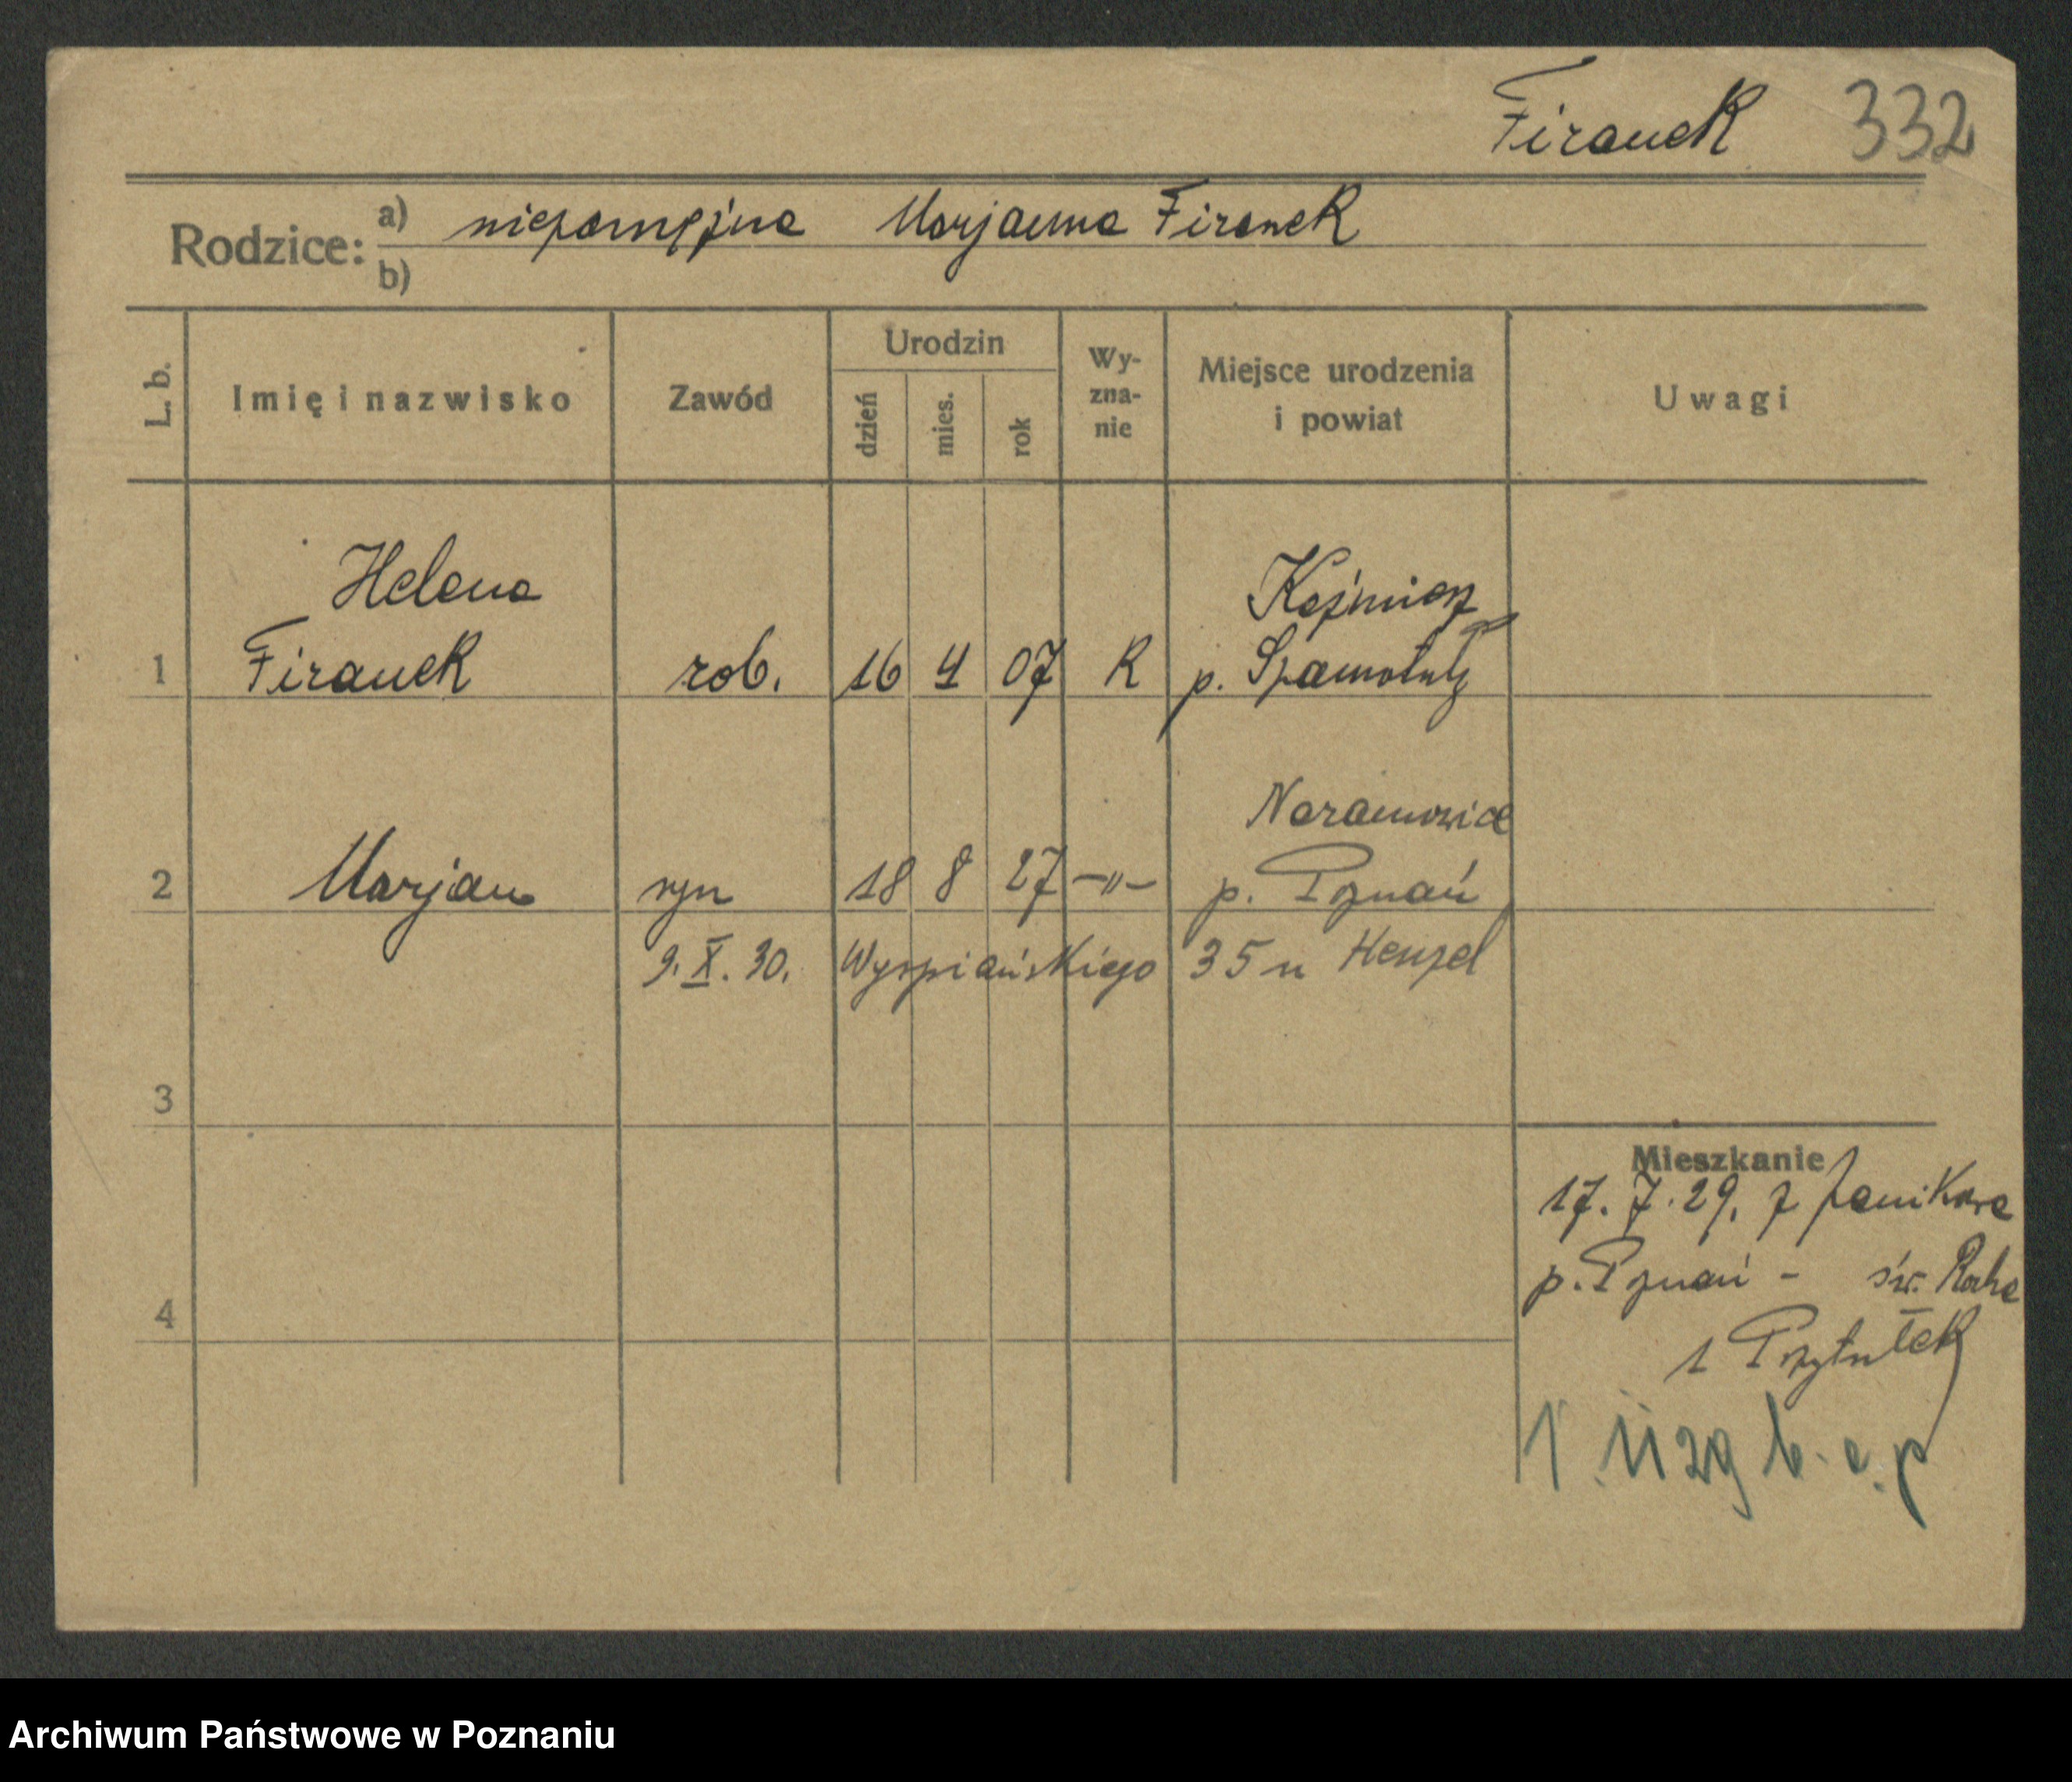 Firanek 332
Rodzice: a) niezamężna Marjanna Firanek
b)
L. b. Imię i nazwisko Zawód Urodzin dzień mies. rok Wyznanie Miejsce urodzenia i powiat Uwagi
Helena Kaźmierz
1 Firanek rob. 16 4 07 R p. Szamotuły
Naramowice
2 Marjan syn 18 8 27 -"- p. Poznań
9. X. 30. Wyspiańskiego 35 u Henzel
3
Mieszkanie
17. 7. 29. z
p. Poznań - św. Rocha
4
1 Przytułek
1. 11 29 b. a. p
Archiwum Państwowe w Poznaniu